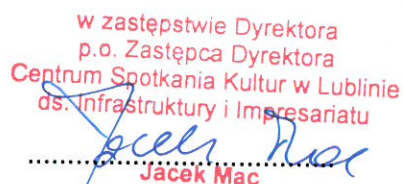 w zastępstwie Dyrektora
p.o. Zastępca Dyrektora
Centrum Spotkania Kultur w Lublinie
ds. Infrastruktury i Impresariatu
Jacek Mac
Jacek Mac